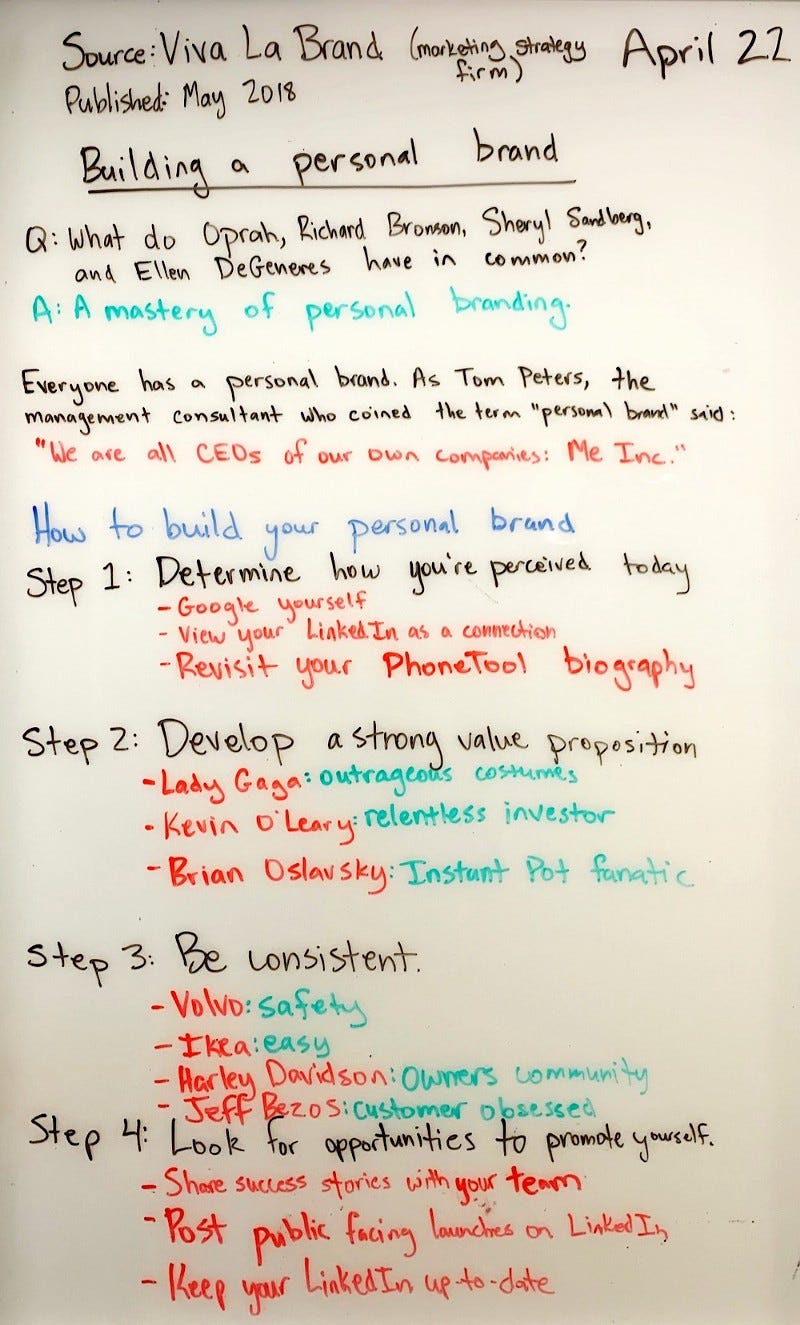 Source: Viva La Brand (marketing strategy firm) April 22
Published: May 2018
Building a personal brand
Q: What do Oprah, Richard Bronson, Sheryl Sandberg,
and Ellen DeGeneres have in common?
A: A mastery of personal branding.
Everyone has a personal brand. As Tom Peters, the
management consultant who coined the term "personal brand" said:
"We are all CEOs of our own companies: Me Inc."
How to build your personal brand
Step 1: Determine how you're perceived today
- Google yourself
- View your LinkedIn as a connection
- Revisit your PhoneTool biography
Step 2: Develop a strong value proposition
- Lady Gaga: outrageous costumes
- Kevin O'Leary: relentless investor
- Brian Oslavsky: Instant Pot fanatic
Step 3: Be consistent.
- Volvo: safety
- Ikea: easy
- Harley Davidson: Owners community
- Jeff Bezos: customer obsessed
Step 4: Look for opportunities to promote yourself.
- Share success stories with your team
- Post public facing launches on LinkedIn
- Keep your LinkedIn up-to-date